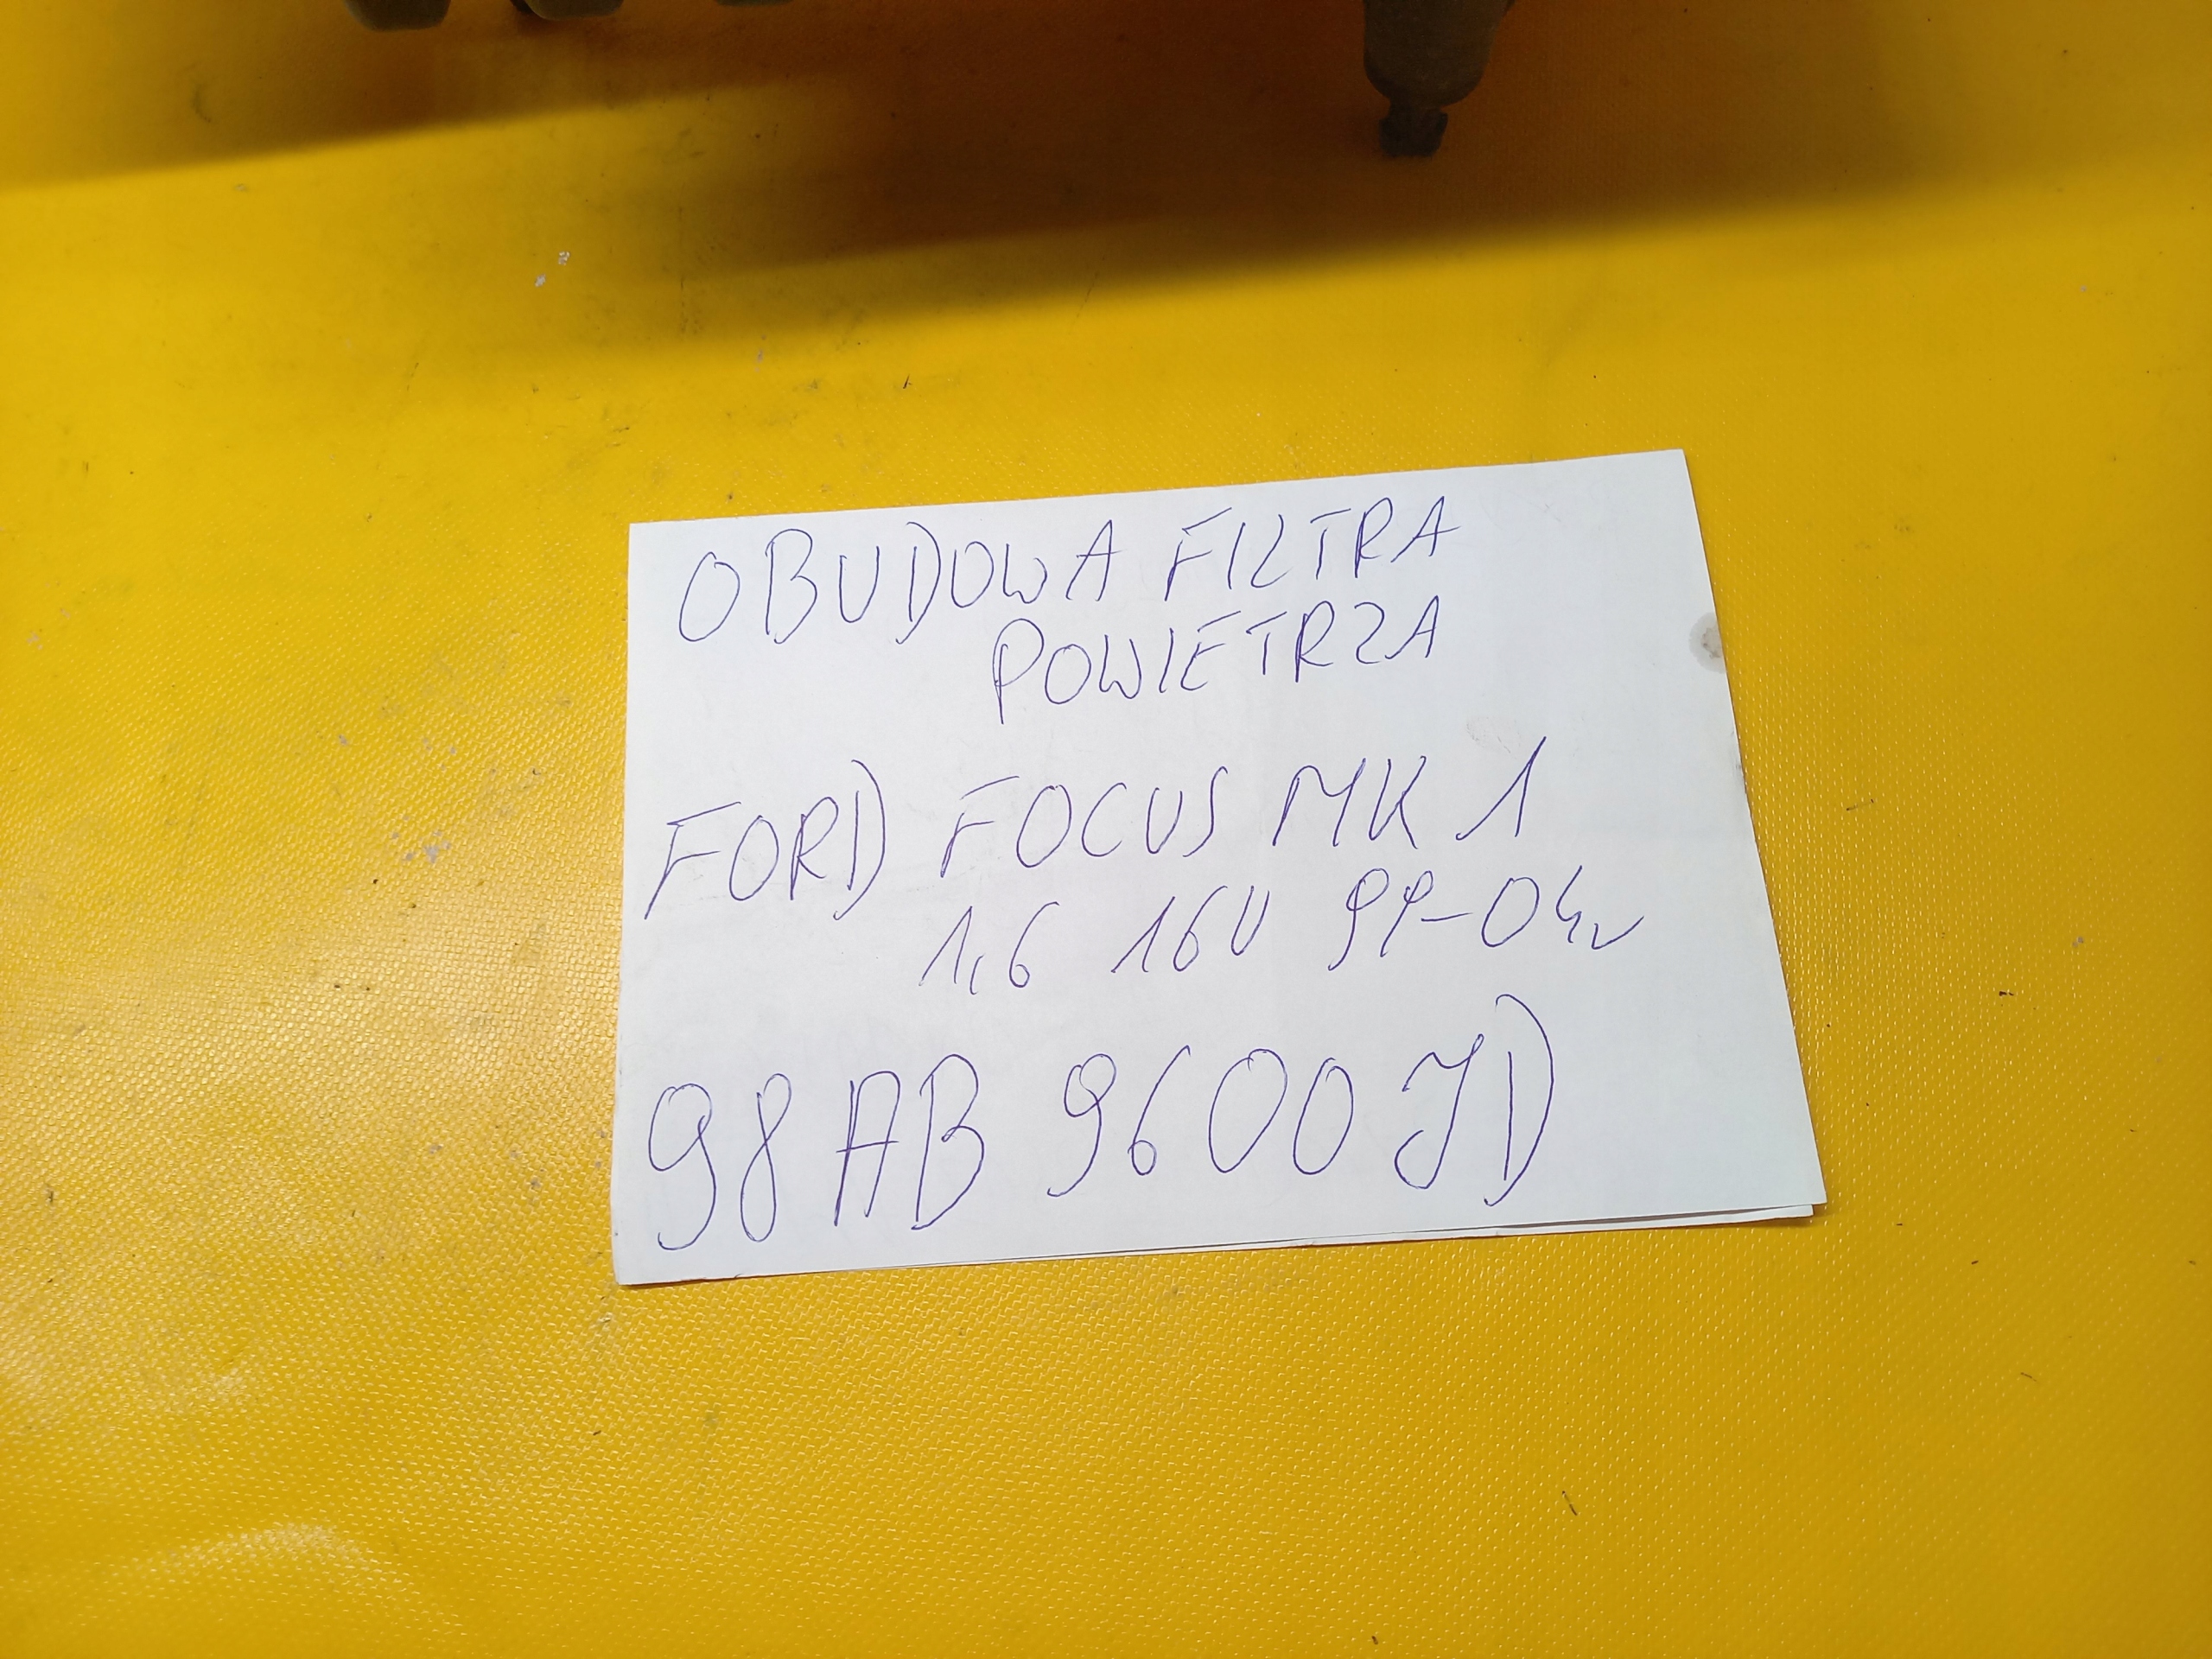 OBUDOWA FILTRA
POWIETRZA
FORD FOCUS MK 1
1,6 16V 99-04r
98AB 9600 JD